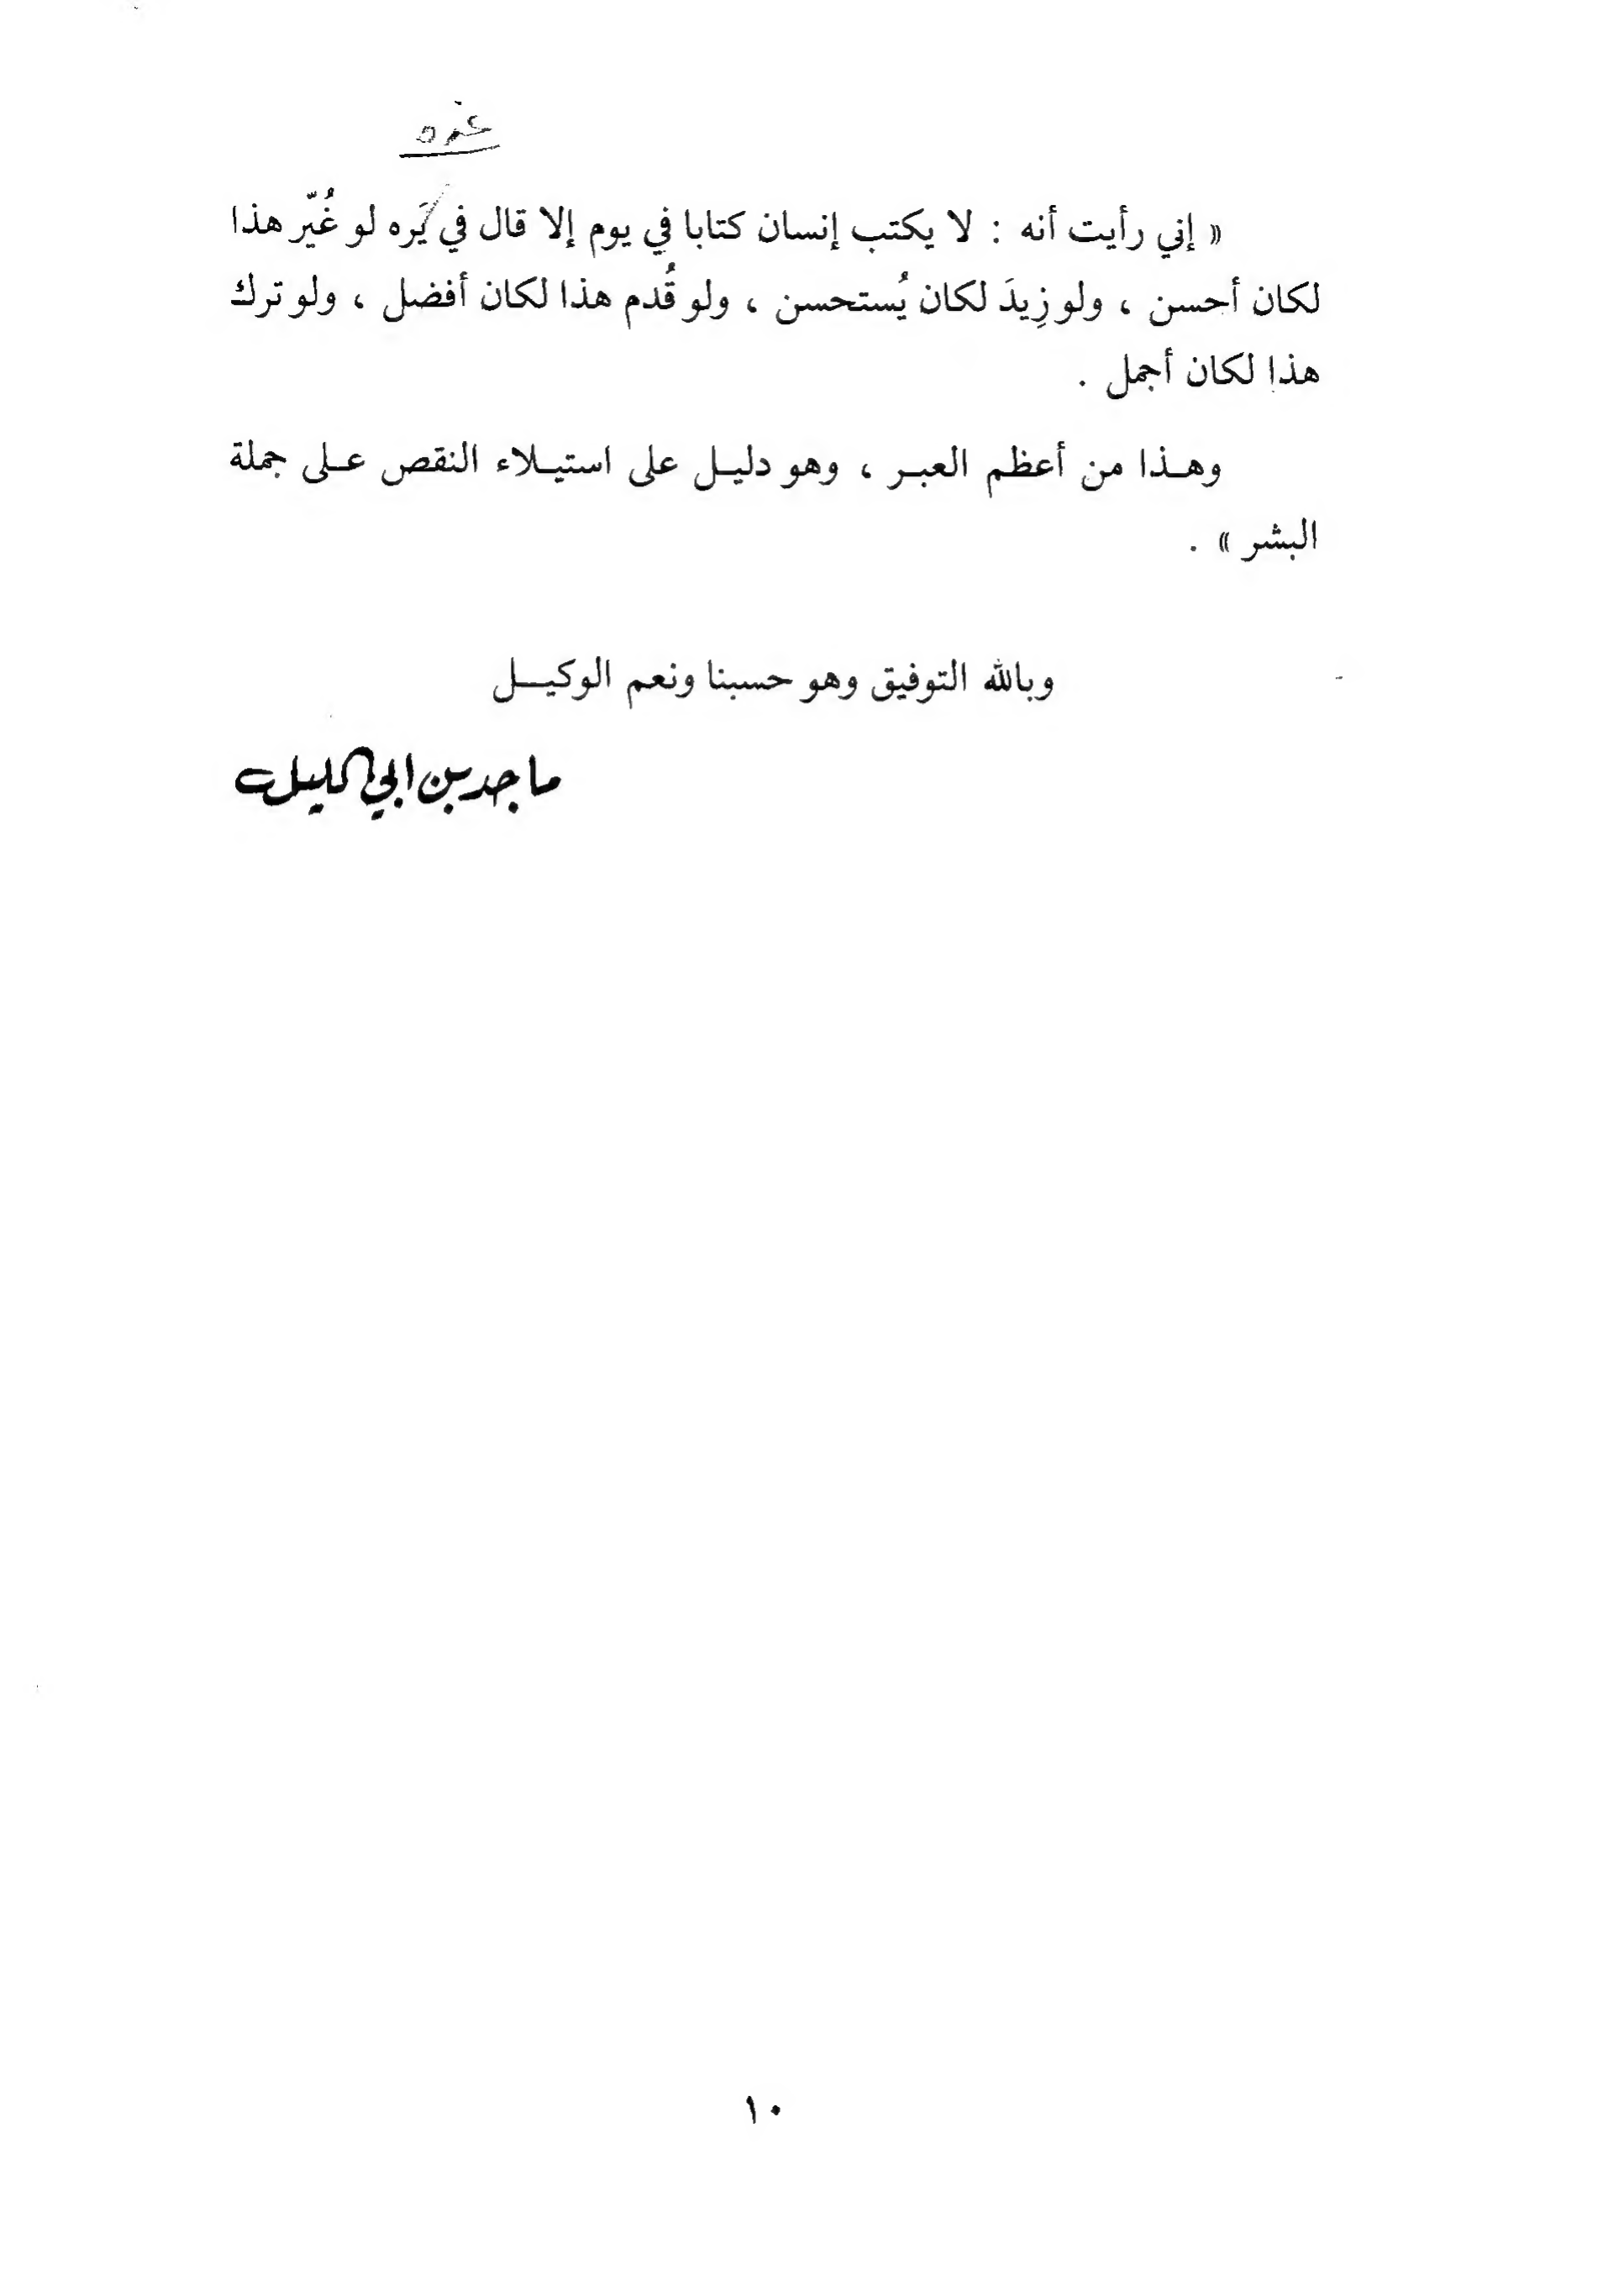 غده
« إني رأيت أنه : لا يكتب إنسان كتابا في يوم إلا قال في يَره لو غُيّر هذا
لكان أحسن ، ولو زِيدَ لكان يُستحسن ، ولو قُدم هذا لكان أفضل ، ولو ترك
هذا لكان أجمل .
وهـذا من أعظم العبـر ، وهو دليـل على استيـلاء النقص عـلى جملة
البشر » .
وبالله التوفيق وهو حسبنا ونعم الوكيــل
ماجد بن ابي
١٠